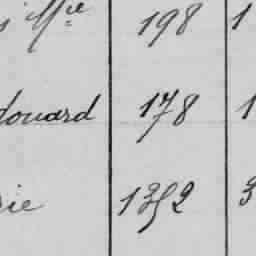 Mie 198 1
douard 178 1
rie 1352 3